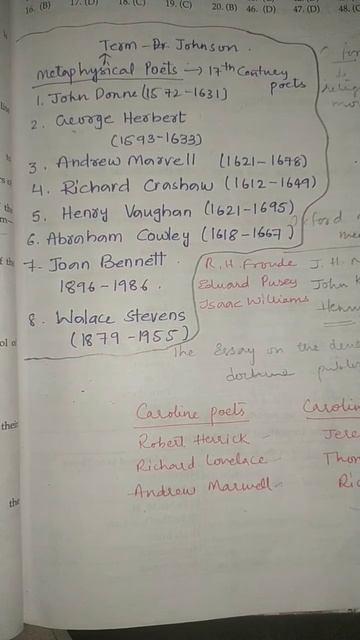 16. (B) 17. (D) 18. (C) 19. (C) 20. (B) 46. (D) 47. (D) 48. (C
Term - Dr. Johnson.
metaphysical Poets → 17th Centuey poets
1. John Donne (1572-1631)
2. George Herbert
(1593-1633)
3. Andrew Marvell (1621-1678)
4. Richard Crashaw (1612-1649)
5. Henry Vaughan (1621-1695)
6. Abraham Cowley (1618-1667)
ford
7. Joan Bennett
1896-1986.
R.H. Froude J. H.
Edward Pusey John
Isaac Williams
8. Walace Stevens
(1879-1955)
The Essay on the
doctrine
Caroline poets Carolin
Robert Herrick Jere
Richard Lovelace Thom
Andrew Marwell Ric
their
the